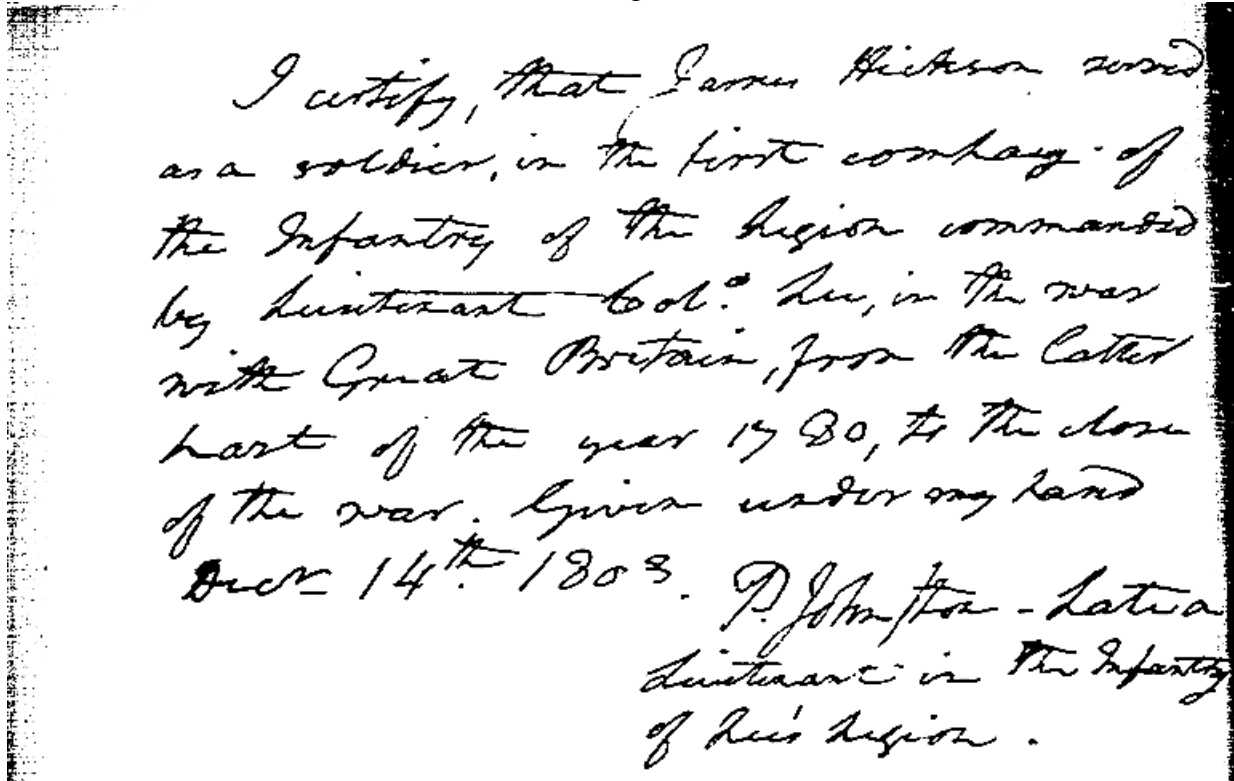 I certify, that James Hickson served
as a soldier, in the first company of
the Infantry of the Legion commanded
by Lieutenant Col.º Lee, in the war
with Great Britain, from the latter
part of the year 1780, to the close
of the war. Given under my hand
Decr 14th. 1808.
P. Johnston - Late a
Lieutenant in the Infantry
of Lee's Legion.